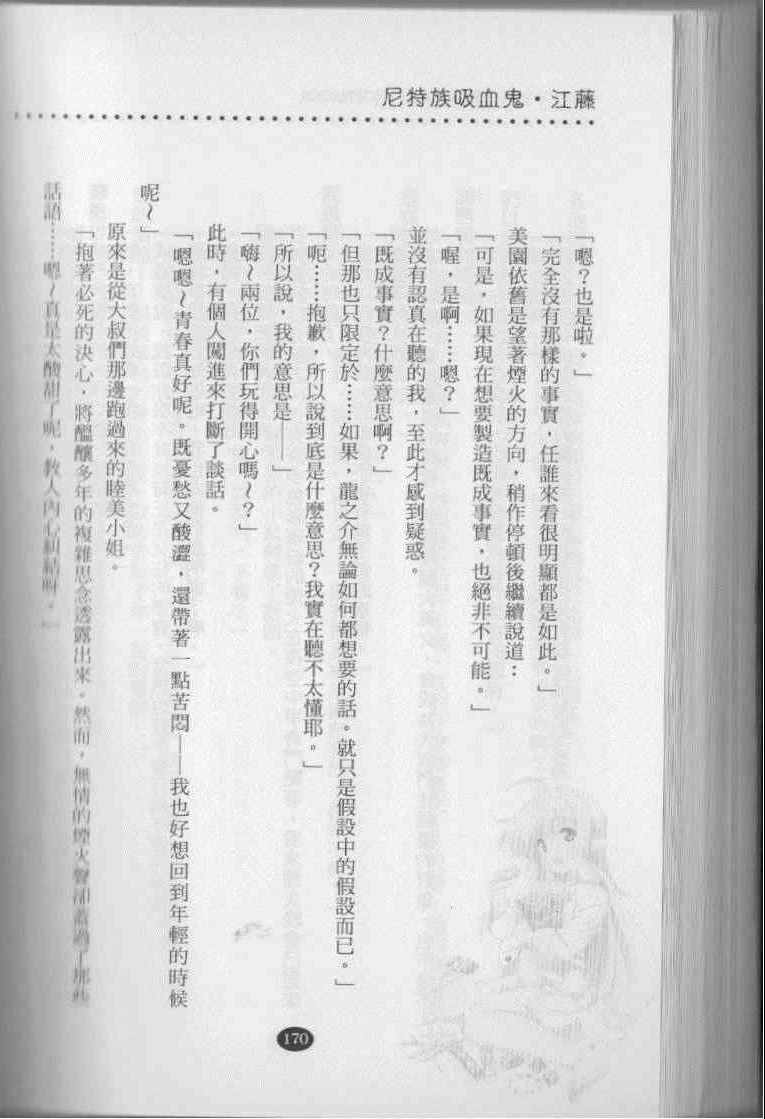 尼特族吸血鬼・江藤
「嗯？也是啦。」
「完全沒有那樣的事實，任誰來看很明顯都是如此。」
美園依舊是望著煙火的方向，稍作停頓後繼續說道：
「可是，如果現在想要製造既成事實，也絕非不可能。」
「喔，是啊……嗯？」
並沒有認真在聽的我，至此才感到疑惑。
「既成事實？什麼意思啊？」
「但那也只限定於……如果，龍之介無論如何都想要的話。就只是假設中的假設而已。」
「呃……抱歉，所以說到底是什麼意思？我實在聽不太懂耶。」
「所以說，我的意思是——」
「嗨～兩位，你們玩得開心嗎～？」
此時，有個人闖進來打斷了談話。
「嗯嗯～青春真好呢。既憂愁又酸澀，還帶著一點苦悶——我也好想回到年輕的時候
呢～」
原來是從大叔們那邊跑過來的睦美小姐。
「抱著必死的決心，將醞釀多年的複雜思念透露出來。然而，無情的煙火聲卻蓋過了那些
話語……嗯～真是太酸甜了呢，教人內心糾結呀。」
170